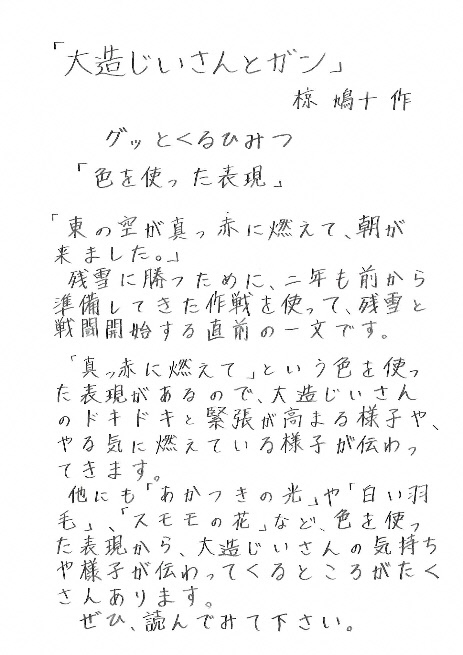 「大造じいさんとガン」
椋 鳩十 作
グッとくるひみつ
「色を使った表現」
「東の空が真っ赤に燃えて、朝が
来ました。」
残雪に勝つために、二年も前から
準備してきた作戦を使って、残雪と
戦闘開始する直前の一文です。
「真っ赤に燃えて」という色を使っ
た表現があるので、大造じいさん
のドキドキと緊張が高まる様子や、
やる気に燃えている様子が伝わっ
てきます。
他にも「あかつきの光」や「白い羽
毛」、「スモモの花」など、色を使っ
た表現から、大造じいさんの気持ち
や様子が伝わってくるところがたく
さんあります。
ぜひ、読んでみて下さい。